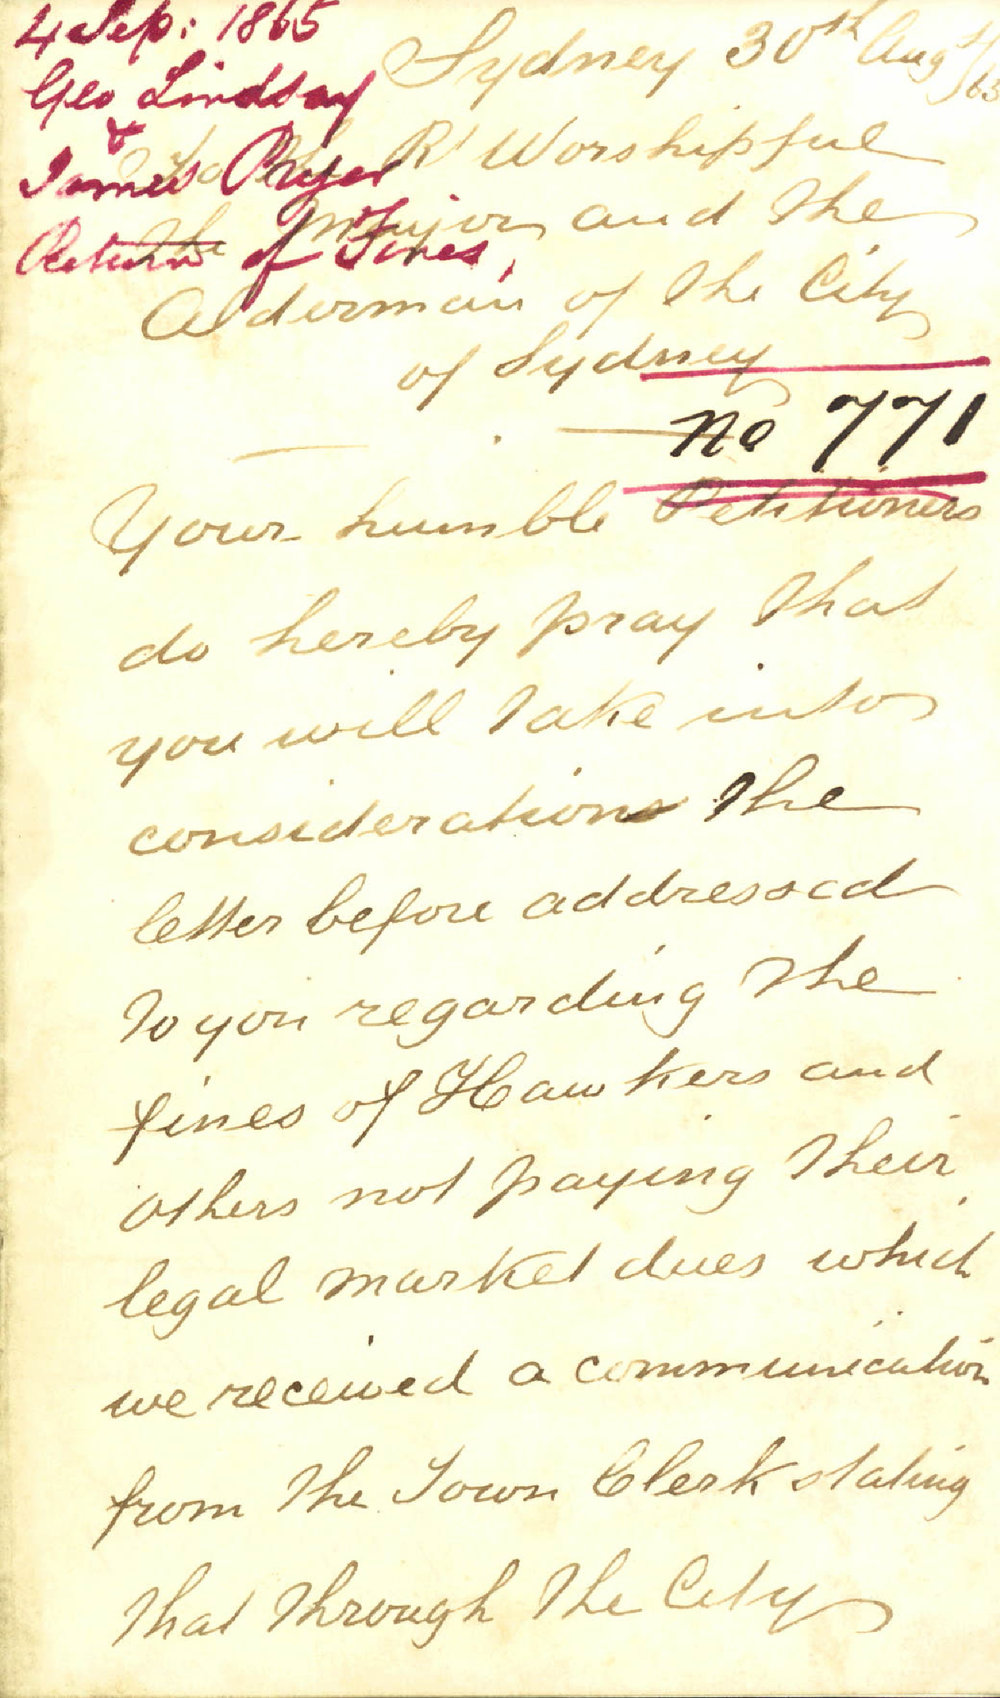 4 Sep: 1865
Geo Lindsay
&
James Pryer
Return of Fines,
Sydney 30th Augst/65
To the Rt Worshipful
the Mayor and the
Alderman of the City
of Sydney
No 771
Your humble Petitioners
do hereby pray that
you will take into
consideration the
letter before addressed
to you regarding the
fines of Hawkers and
others not paying their
legal market dues which
we received a communication
from the Town Clerk stating
that through the City